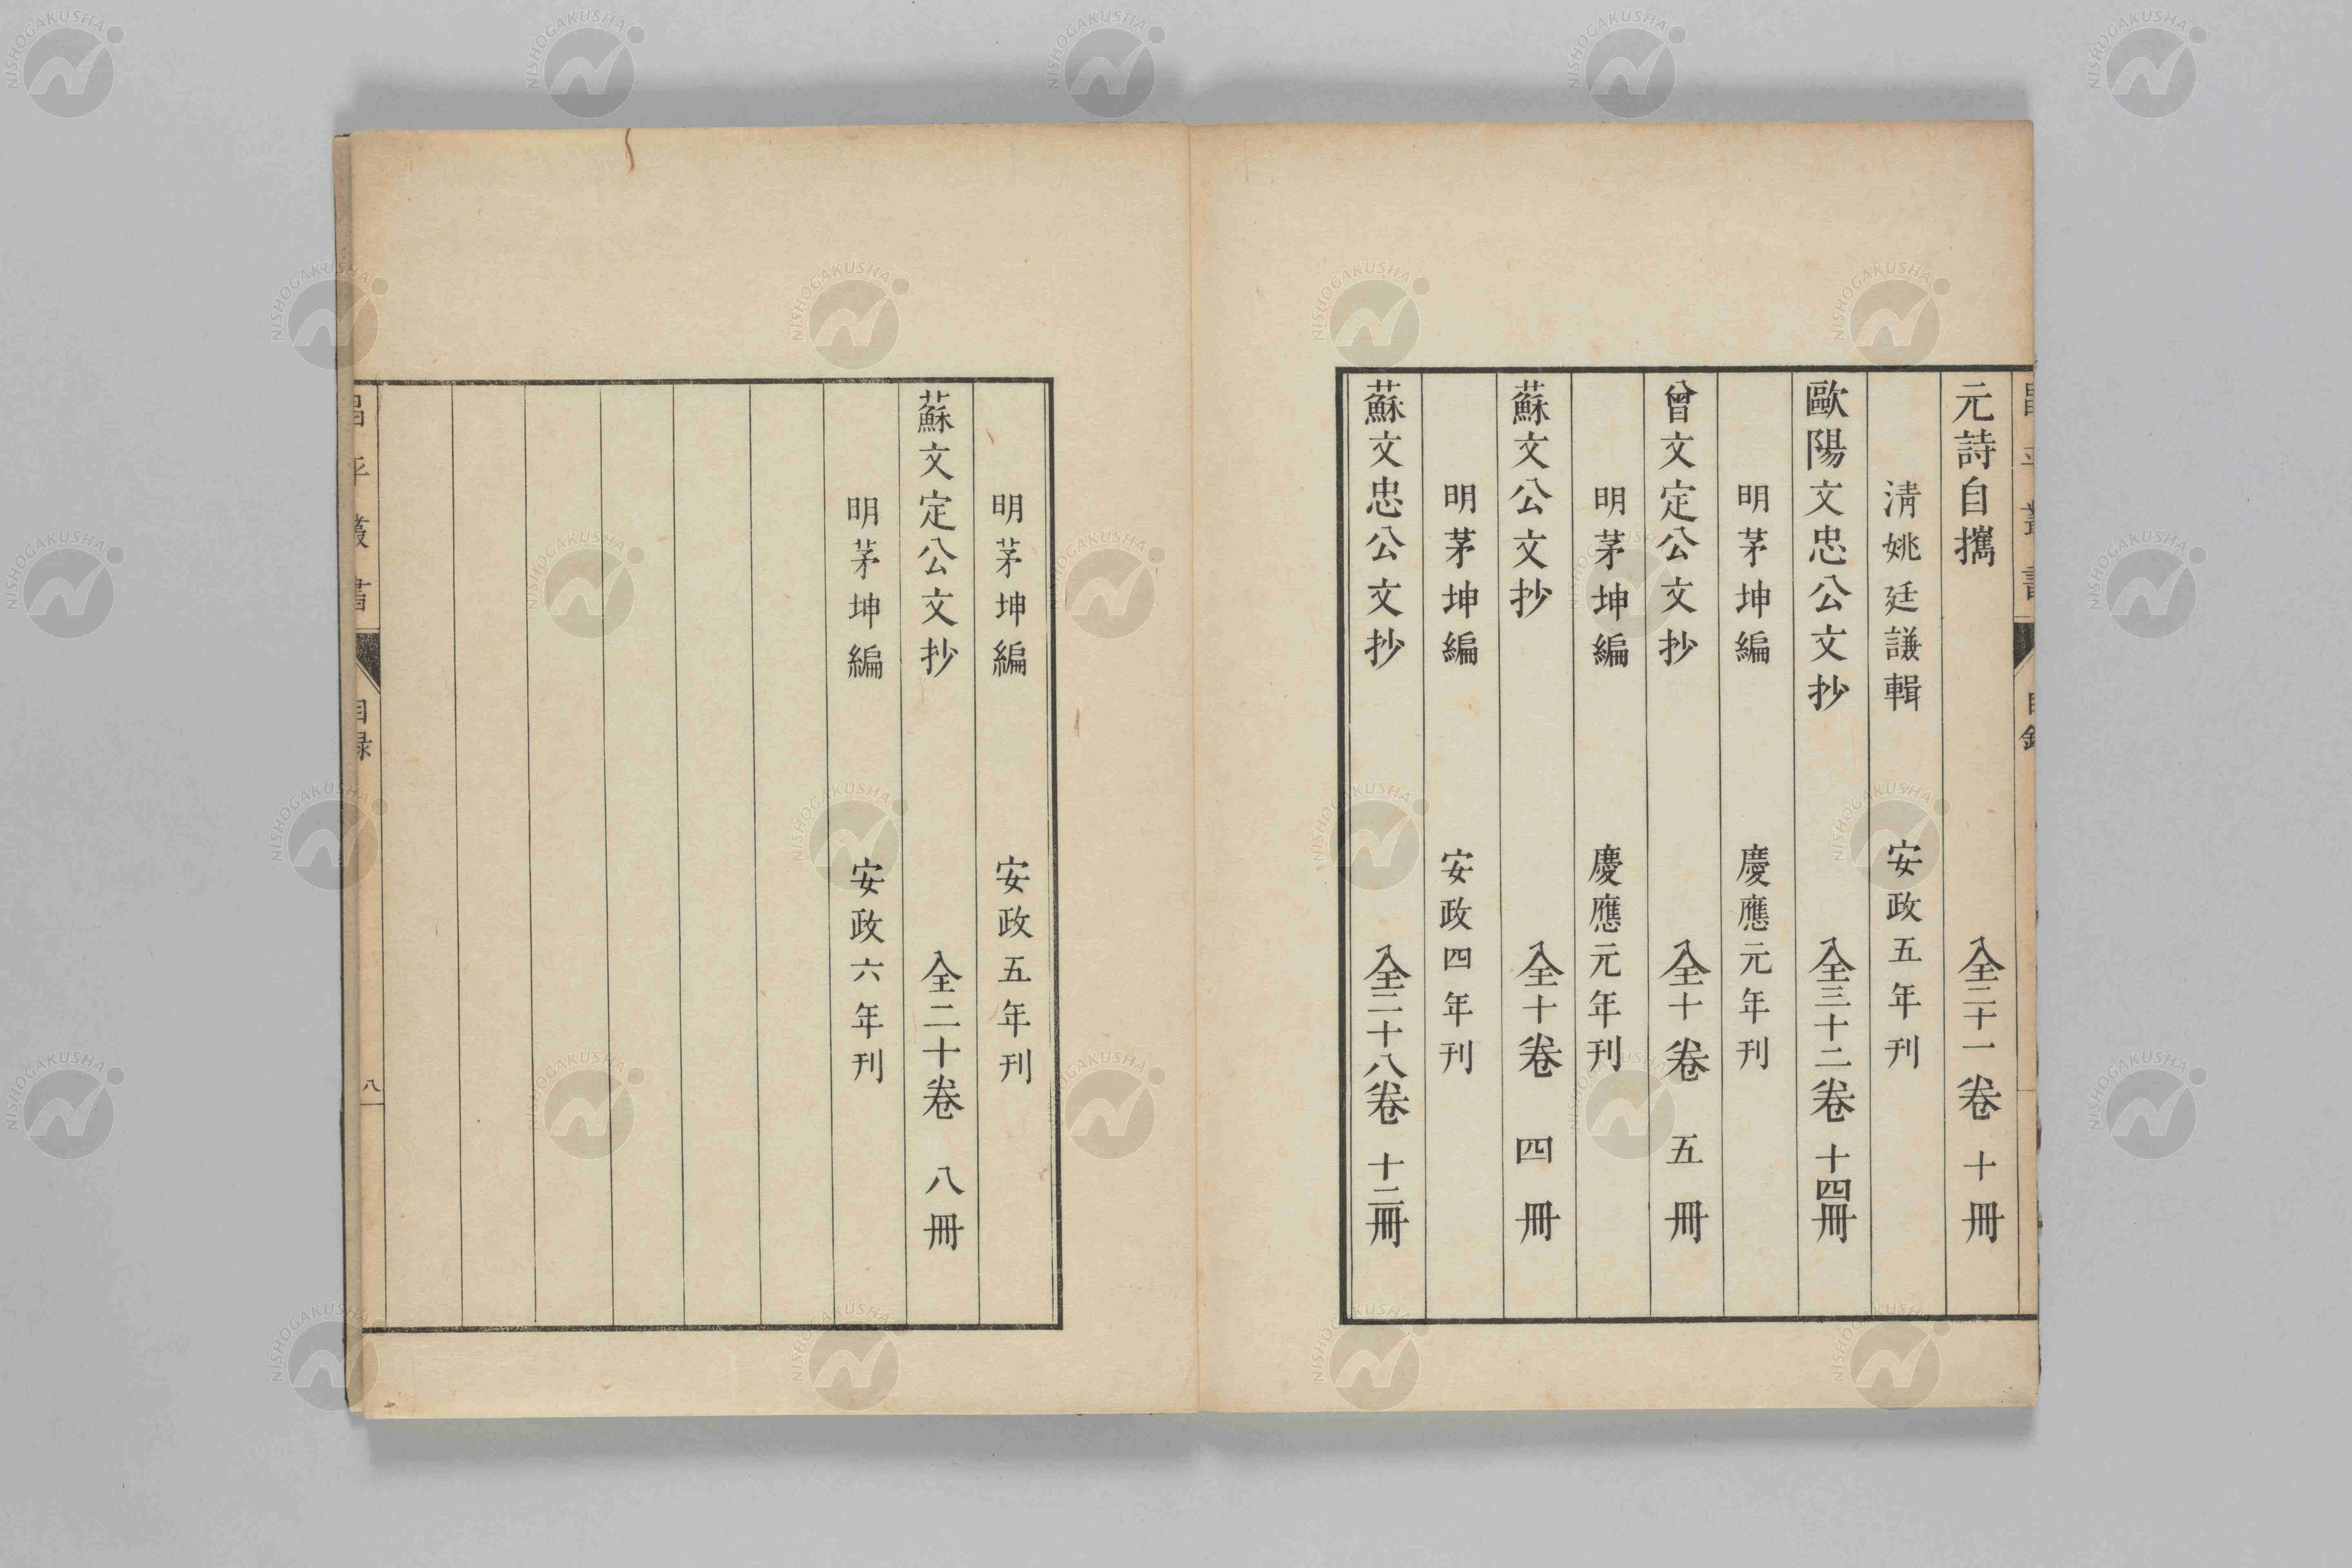 元詩自攜　全二十一卷　十冊
清姚廷謙輯　安政五年刊
歐陽文忠公文抄　全三十二卷　十四冊
明茅坤編　慶應元年刊
曾文定公文抄　全十卷　五冊
明茅坤編　慶應元年刊
蘇文公文抄　全十卷　四冊
明茅坤編　安政四年刊
蘇文忠公文抄　全二十八卷　十二冊
明茅坤編　安政五年刊
蘇文定公文抄　全二十卷　八冊
明茅坤編　安政六年刊
八
NISHOGAKUSHA